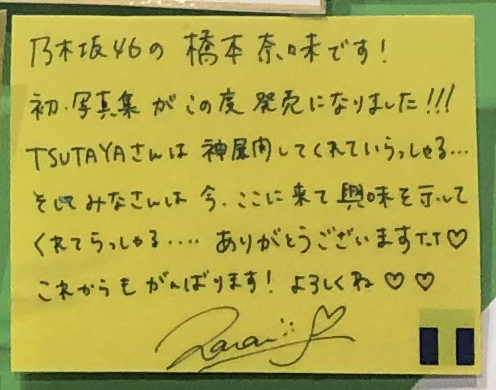 乃木坂46の 橋本奈々味です!
初.写真集 が この度 発売になりました!!!
TSUTAYAさんは 神展開してくれていらっしゃる...
そしてみなさんは 今、ここに来て 興味を示して
くれてらっしゃる.... ありがとうございますT.T♡
これからも がんばります! よろしくね ♡ ♡